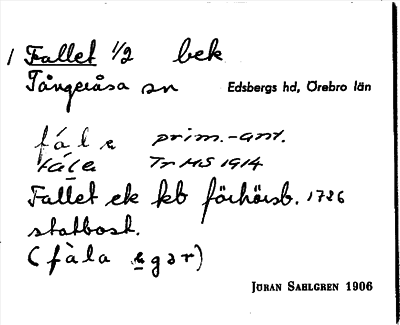 1 Fallet 1/2 bek
Tångeråsa sn Edsbergs hd, Örebro län
fála prim.-ant.
fála Tr HS 1914
Fallet ek kb förhörsb. 1786
statbost.
(fàla ägər)
JÖRAN SAHLGREN 1906